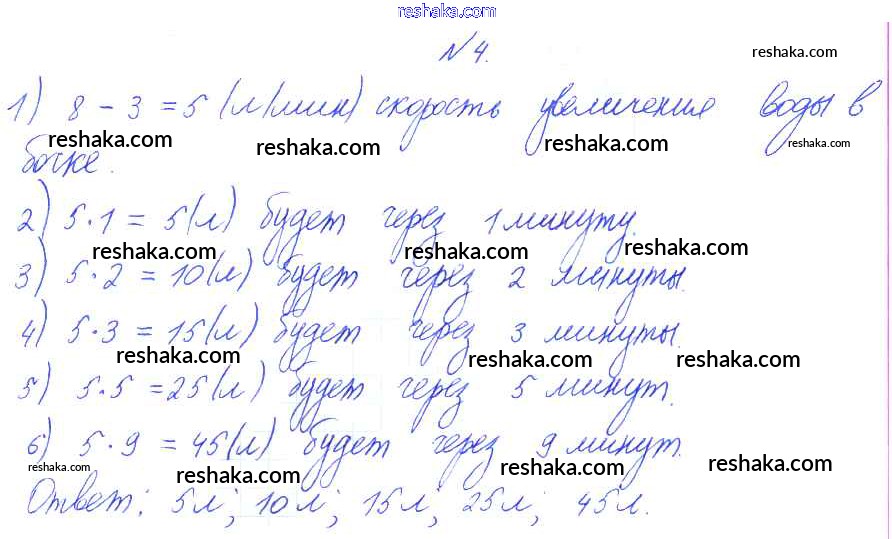 reshaka.com
№ 4.
reshaka.com
1) 8 - 3 = 5 (л/мин) скорость увеличения воды в
reshaka.com reshaka.com reshaka.com reshaka.com
бочке.
2) 5 · 1 = 5 (л) будет через 1 минуту.
reshaka.com reshaka.com reshaka.com
3) 5 · 2 = 10 (л) будет через 2 минуты.
4) 5 · 3 = 15 (л) будет через 3 минуты.
reshaka.com reshaka.com reshaka.com
5) 5 · 5 = 25 (л) будет через 5 минут.
6) 5 · 9 = 45 (л) будет через 9 минут.
reshaka.com reshaka.com reshaka.com reshaka.com
Ответ: 5 л; 10 л; 15 л; 25 л; 45 л.